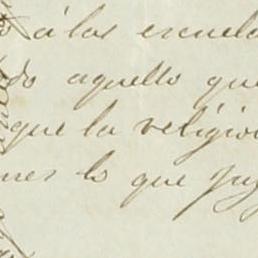 á las escuela
do aquello que
que la religion
nes lo que juz